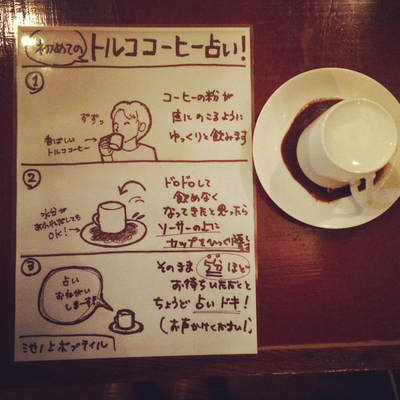 初めての トルココーヒー占い!
①
コーヒーの粉が
底にのこるように
ゆっくりと飲みます
ずずっ
香ばしい
トルココーヒー
②
ドロドロして
飲めなく
なってきたと思ったら
ソーサーの上に
カップをひっくり返し
水分が
あふれだしても
OK!
③
そのまま 5分 ほど
お待ちいただくと
ちょうど 占いドキ!
(お声かけください!)
占い
おねがい
しまーす!
池ノ上ボブテイル